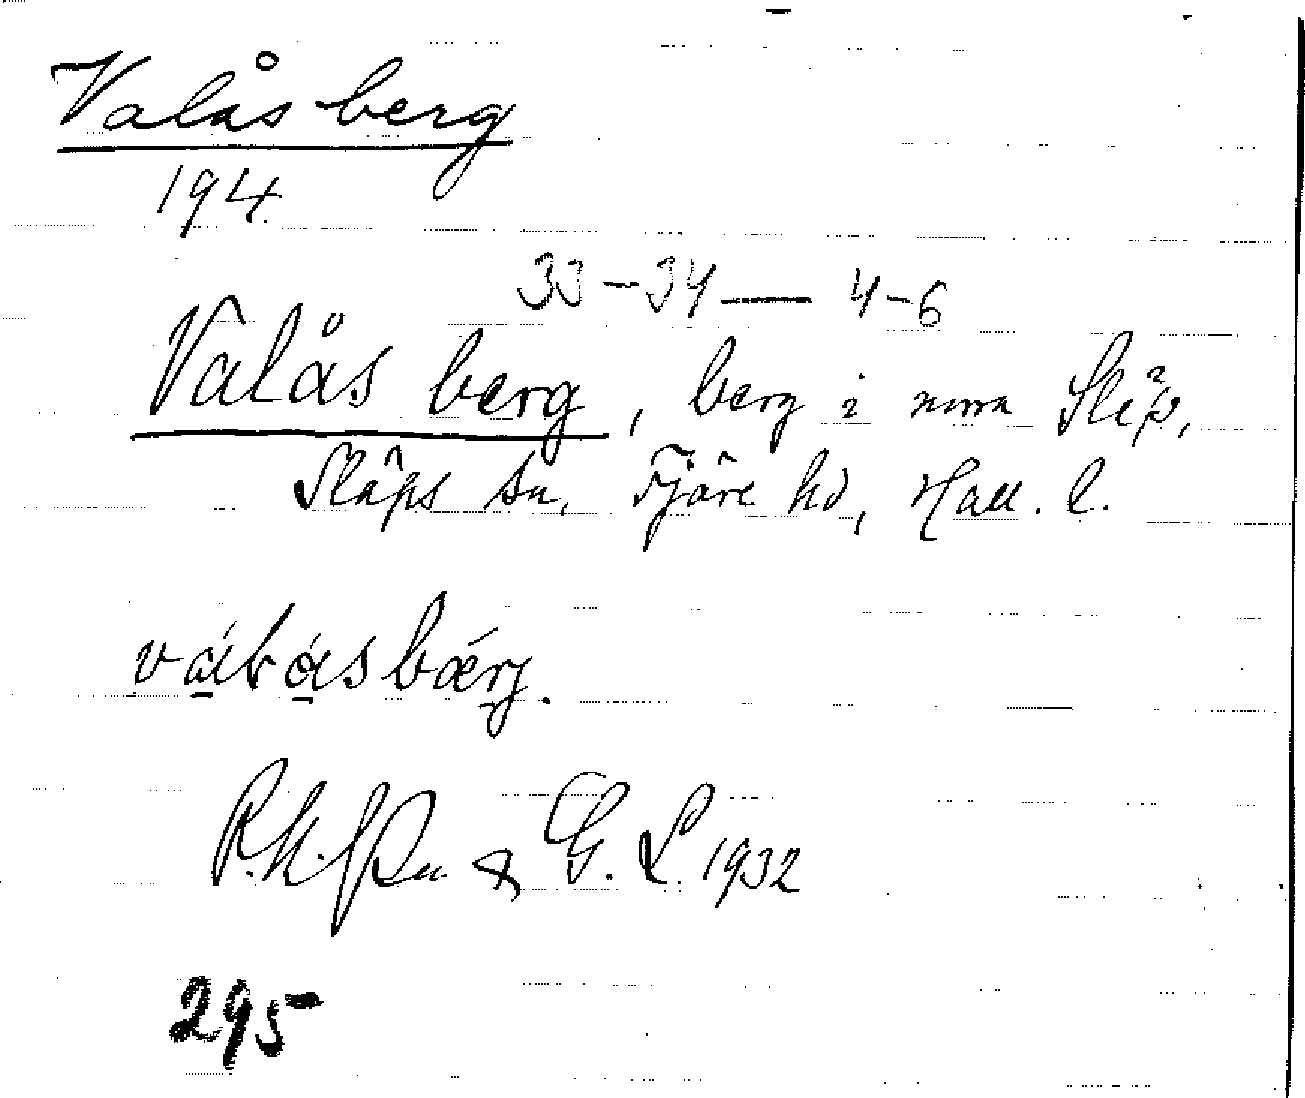 Valås berg
194
33-34 — 4-6
Valås berg, berg i norra Släp,
Släps sn, Fjäre hd, Hall. l.
& G. L 1932
295